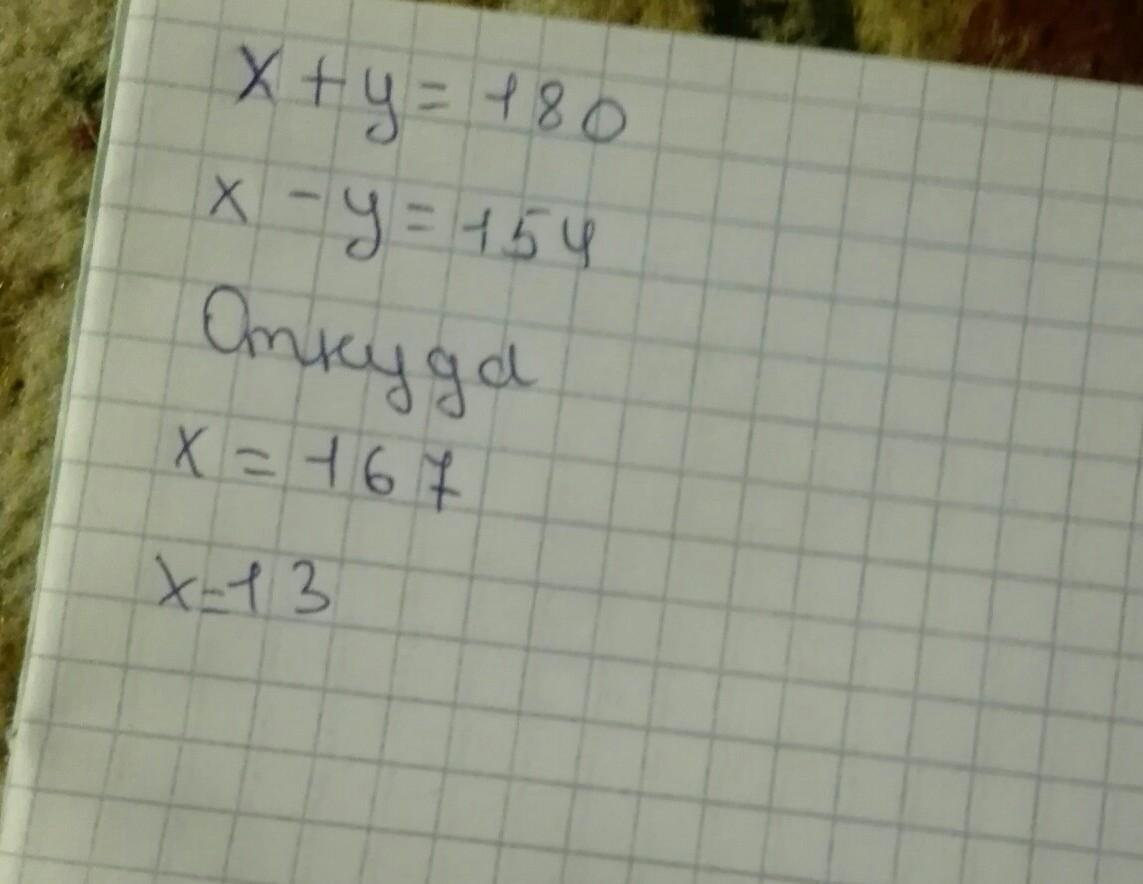 x + y = 180
x - y = 154
Откуда
x = 167
x = 13